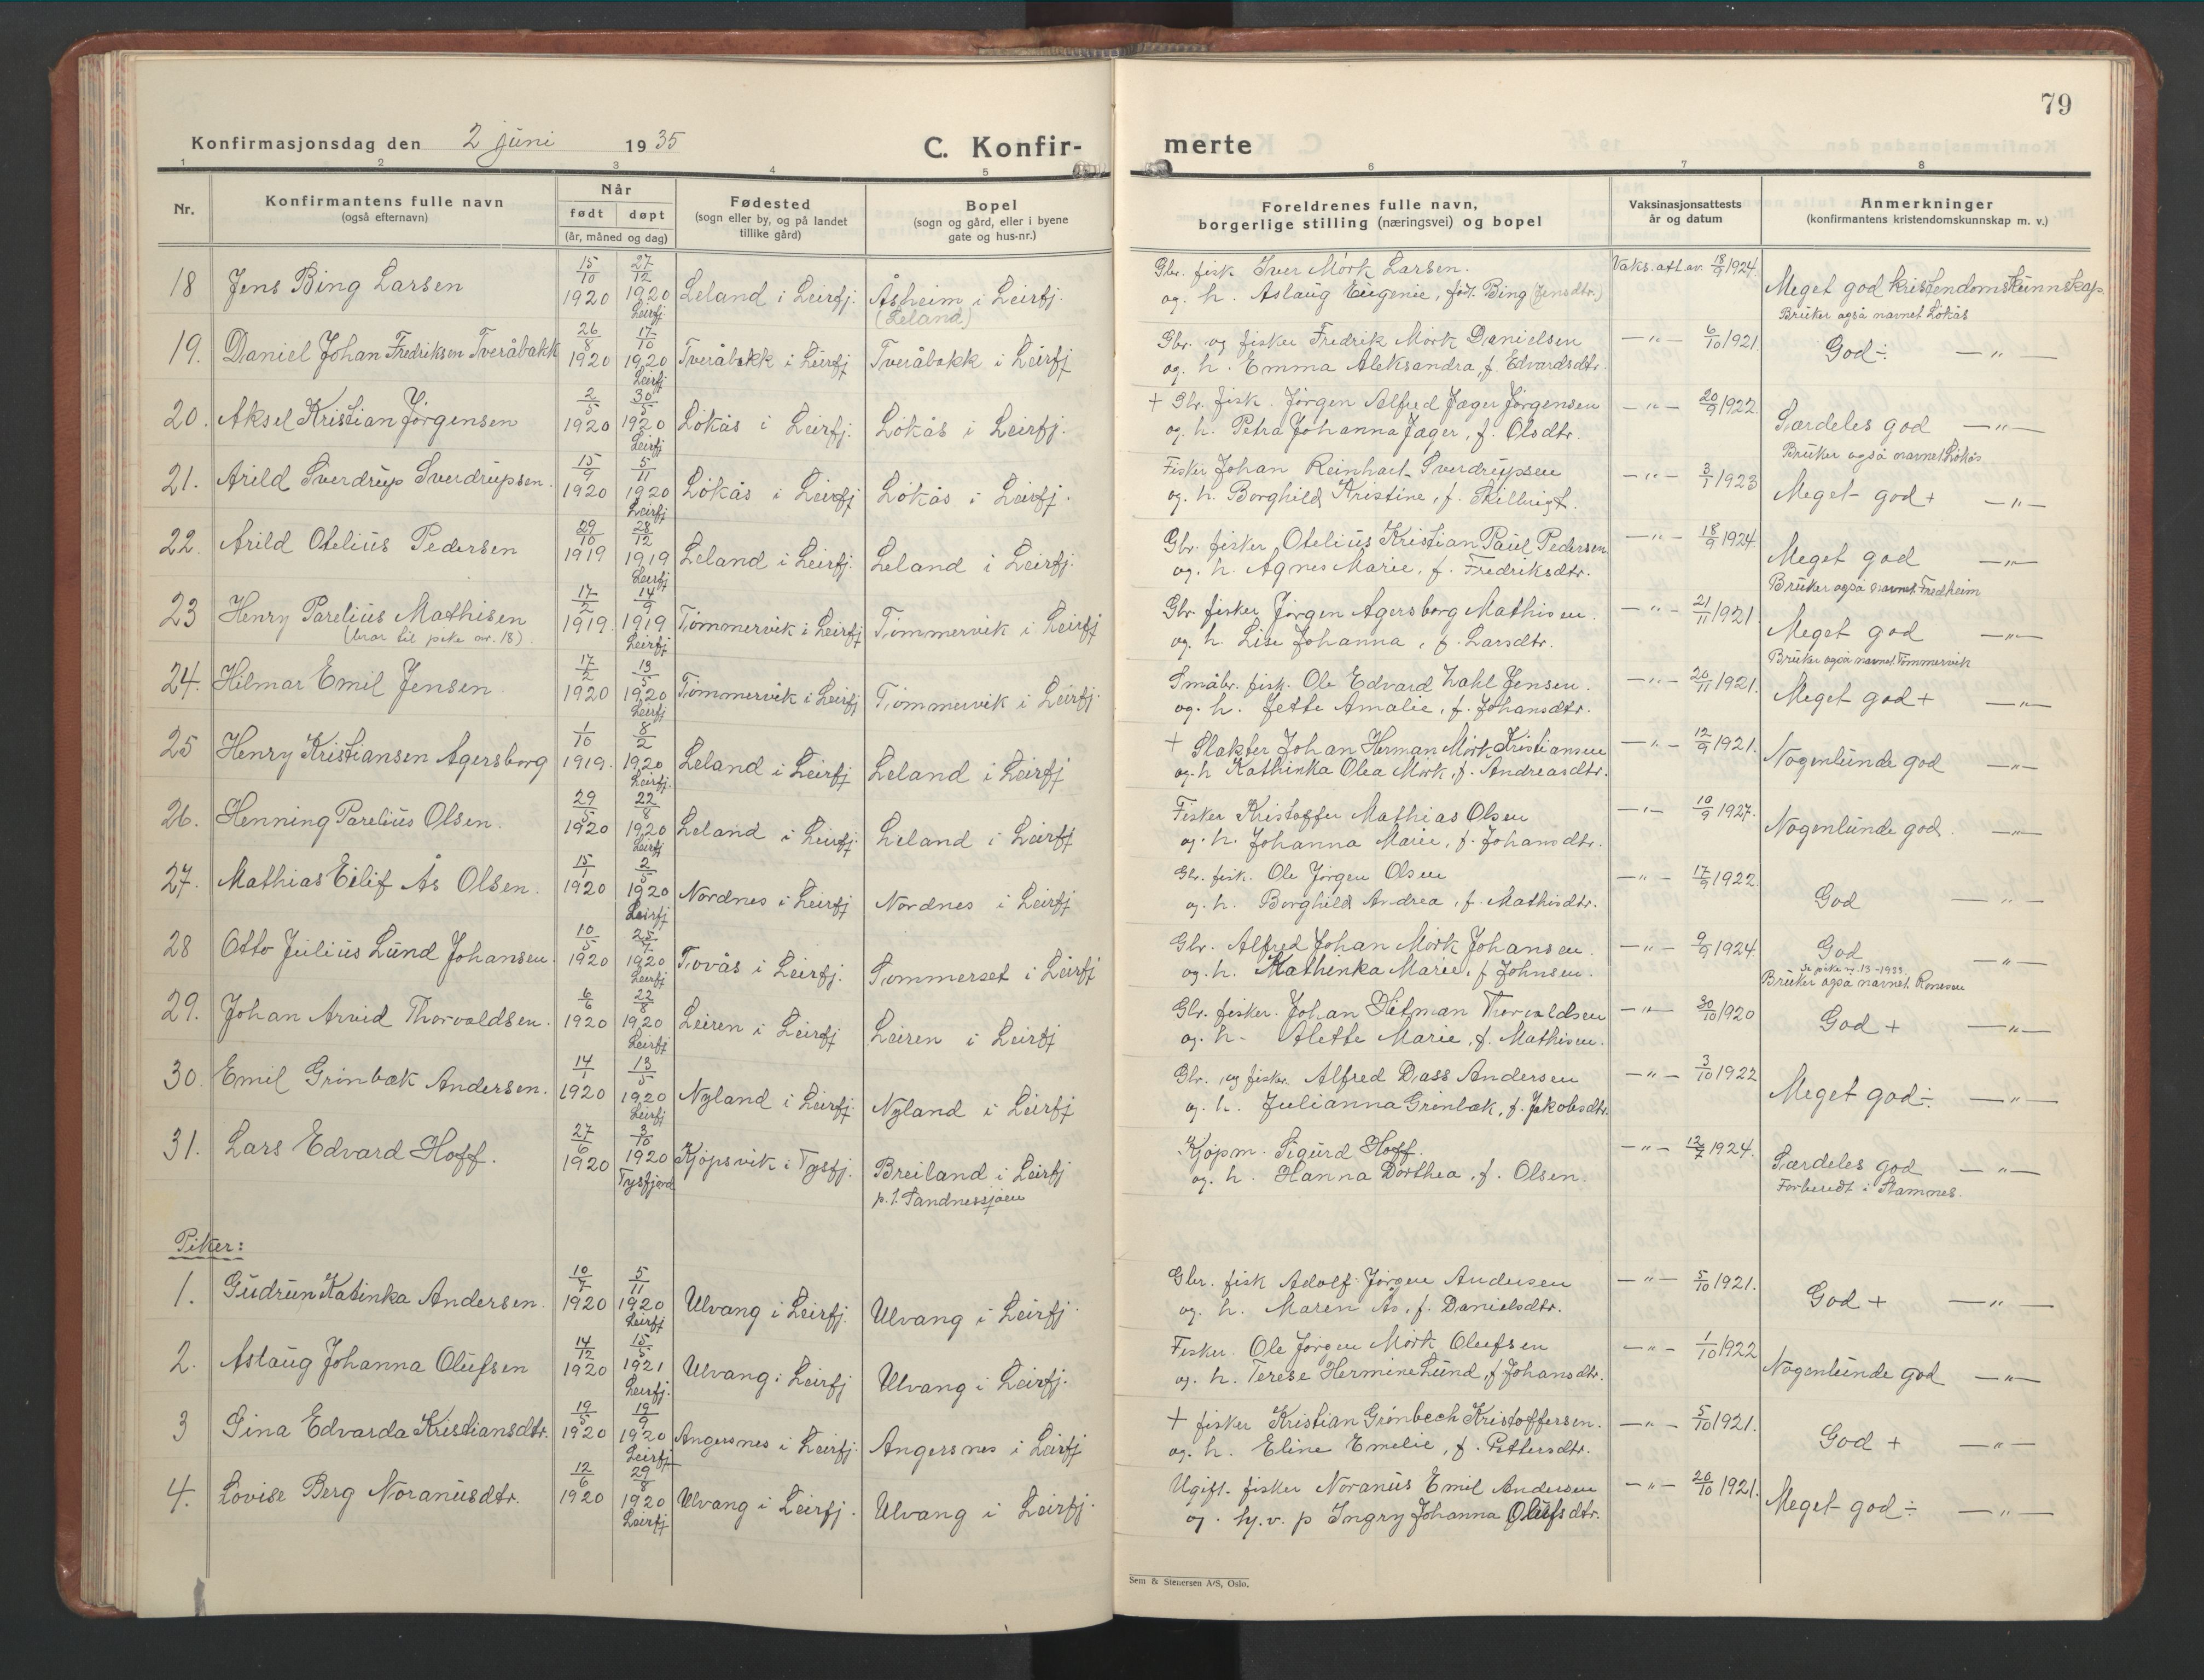 79
Konfirmasjonsdag den 2 juni 1935
C. Konfir-
merte
1 2 3 4 5 6 7 8
Nr.
Konfirmantens fulle navn
(også efternavn)
Når
født døpt
(år, måned og dag)
Fødested
(sogn eller by, og på landet
tillike gård)
Bopel
(sogn og gård, eller i byene
gate og hus-nr.)
Foreldrenes fulle navn,
borgerlige stilling (næringsvei) og bopel
Vaksinasjonsattests
år og datum
Anmerkninger
(konfirmantens kristendomskunnskap m. v.)
18 Jens Bing Larsen 15/10 1920 27/12 1920 Leirfj Leland i Leirfj. Åsheim i Leirfj. (Leland)
Gbr. fisk Iver Mörk Larsen. Vaks.att.av. 18/9 1924
og. h. Aslaug Eugenie, født Bing (Jensdtr.) Meget god kristendomskunnskap
19. Daniel Johan Fredriksen Tveråbakk 26/8 1920 17/10 1920 Leirfj Tveråbakk i Leirfj Tveråbakk i Leirfj
Bruker også navnet Lökås
Gbr. og fisker Fredrik Mörk Danielsen —"— 6/10 1921
og. h. Emma Aleksandra, f. Edvardsdtr. God ÷ —"—
20. Aksel Kristian Jörgensen 2/5 1920 30/5 1920 Leirfj Lökås i Leirfj. Lökås i Leirfj.
+ Gbr. fisk. Jörgen Alfred Jæger Jörgensen —"— 20/9 1922
og. h. Petra Johanna Jæger, f. Olsdtr. Særdeles god —"—
21. Arild Sverdrup Sverdrupsen. 15/9 1920 5/11 1920 Leirfj Lökås i Leirfj Lökås i Leirfj.
Bruker også navnet Lökås
Fisker Johan Reinhart Sverdrupsen —"— 3/1 1923
og. h. Borghild Kristine, f. Skillvigt. Meget god + —"—
22. Arild Otelius Pedersen 29/10 1919 28/12 1919 Leirfj Leland i Leirfj. Leland i Leirfj.
Gbr. fisker Otelius Kristian Paul Pedersen —"— 18/9 1924
og. h. Agnes Marie, f. Fredriksdtr. Meget god —"—
23 Henry Parelius Mathisen 17/2 1919. 14/9 1919 Leirfj Tömmervik i Leirfj Tömmervik i Leirfj
(bror til pike nr. 18).
Bruker også navnet Fredheim
Gbr. fisker Jörgen Agersborg Mathisen. —"— 21/11 1921
og h. Lise Johanna, f. Larsdtr. Meget god —"—
24. Hilmar Emil Jensen 17/2 1920 13/5 1920 Leirfj Tömmervik i Leirfj Tömmervik i Leirfj.
Bruker også navnet Tömmervik
Småbr. fisk. Ole Edvard Zahl Jensen. —"— 20/11 1921.
og. h. Jette Amalie, f. Johansdtr. Meget god + —"—
25 Henry Kristiansen Agersborg 1/10 1919. 8/2 1920 Leirfj. Leland i Leirfj Leland i Leirfj
+ Slakter Johan Herman Mörk Kristiansen —"— 12/9 1921.
og. h Kathinka Olea Mörk, f. Andreasdtr. Nogenlunde god —"—
26. Henning Parelius Olsen. 29/5 1920 22/8 1920 Leirfj Leland i Leirfj. Leland i Leirfj
Fisker Kristoffer Mathias Olsen —"— 10/9 1927.
og. h. Johanna Marie, f. Johansdtr. Nogenlunde god. —"—
27. Mathias Eilif Ås Olsen. 15/1 1920 2/5 1920 Leirfj Nordnes i Leirfj Nordnes i Leirfj
Gbr. fisk. Ole Jörgen Olsen —"— 17/9 1922.
og. h. Borghild Andrea, f. Mathisdtr. God —"—
28 Otto Julius Lund Johansen. 10/5 1920 25/7 1920 Leirfj Tovås i Leirfj. Tommerset i Leirfj
Gbr. Alfred Johan Mörk Johansen. —"— 9/9 1924. God
og. h. Kathinka Marie, f Johnsen. Se pike nr. 13 - 1933 —"—
29. Johan Arvid Thorvaldsen. 6/6 1920 22/8 1920 Leirfj Leiren i Leirfj Leiren i Leirfj
Bruker også navnet Ronesen
Gbr. fisker. Johan Hilman Thorvaldsen —"— 30/10 1920
og. h. Alette Marie, f. Mathisen. God + —"—
30. Emil Grönbæk Andersen. 14/1 1920 13/5 1920 Leirfj Nyland i Leirfj. Nyland i Leirfj
Gbr. og fisker. Alfred Dass Andersen —"— 3/10 1922
og. h. Julianna Grönbæk, f. Jakobsdtr. Meget god ÷ —"—
31. Lars Edvard Hoff. 27/6 1920 3/10 1920 Tysfjord Kjöpsvik i Tysfj. Breiland i Leirfj
p. t. Sandnessjöen
Kjöpm. Sigurd Hoff. —"— 12/7 1924.
og. h. Hanna Dorthea, f. Olsen. Særdeles god —"—
Forberedt i Stamnes.
Piker:
1. Gudrun Katinka Andersen. 10/7 1920 5/11 1920 Leirfj Ulvang i Leirfj. Ulvang i Leirfj.
Gbr. fisk Adolf Jörgen Andersen —"— 5/10 1921.
og. h. Maren Ås, f. Danielsdtr. God + —"—
2. Aslaug Johanna Olufsen 14/12 1920 15/5 1921 Leirfj. Ulvang i Leirfj Ulvang i Leirfj.
Fisker. Ole Jörgen Mörk Olufsen —"— 1/10 1922
og. h. Terese Hermine Lund, f Johansdtr. Nogenlunde god —"—
3 Gina Edvarda Kristiansdtr. 19/5 1920 19/9 1920 Leirfj Angersnes i Leirfj. Angersnes i Leirfj
+ fisker Kristian Grönbech Kristoffersen. —"— 5/10 1921.
og. h. Eline Emelie, f. Pettersdtr. God + —"—
4. Lovise Berg Noranusdtr. 12/6 1920 29/8 1920 Leirfj Ulvang i Leirfj. Ulvang i Leirfj.
Ugift. fisker Noranus Emil Andersen —"— 20/10 1921.
og. hj. v. p Ingry Johanna Olufsdtr. Meget god ÷ —"—
Sem & Stenersen A/S, Oslo.